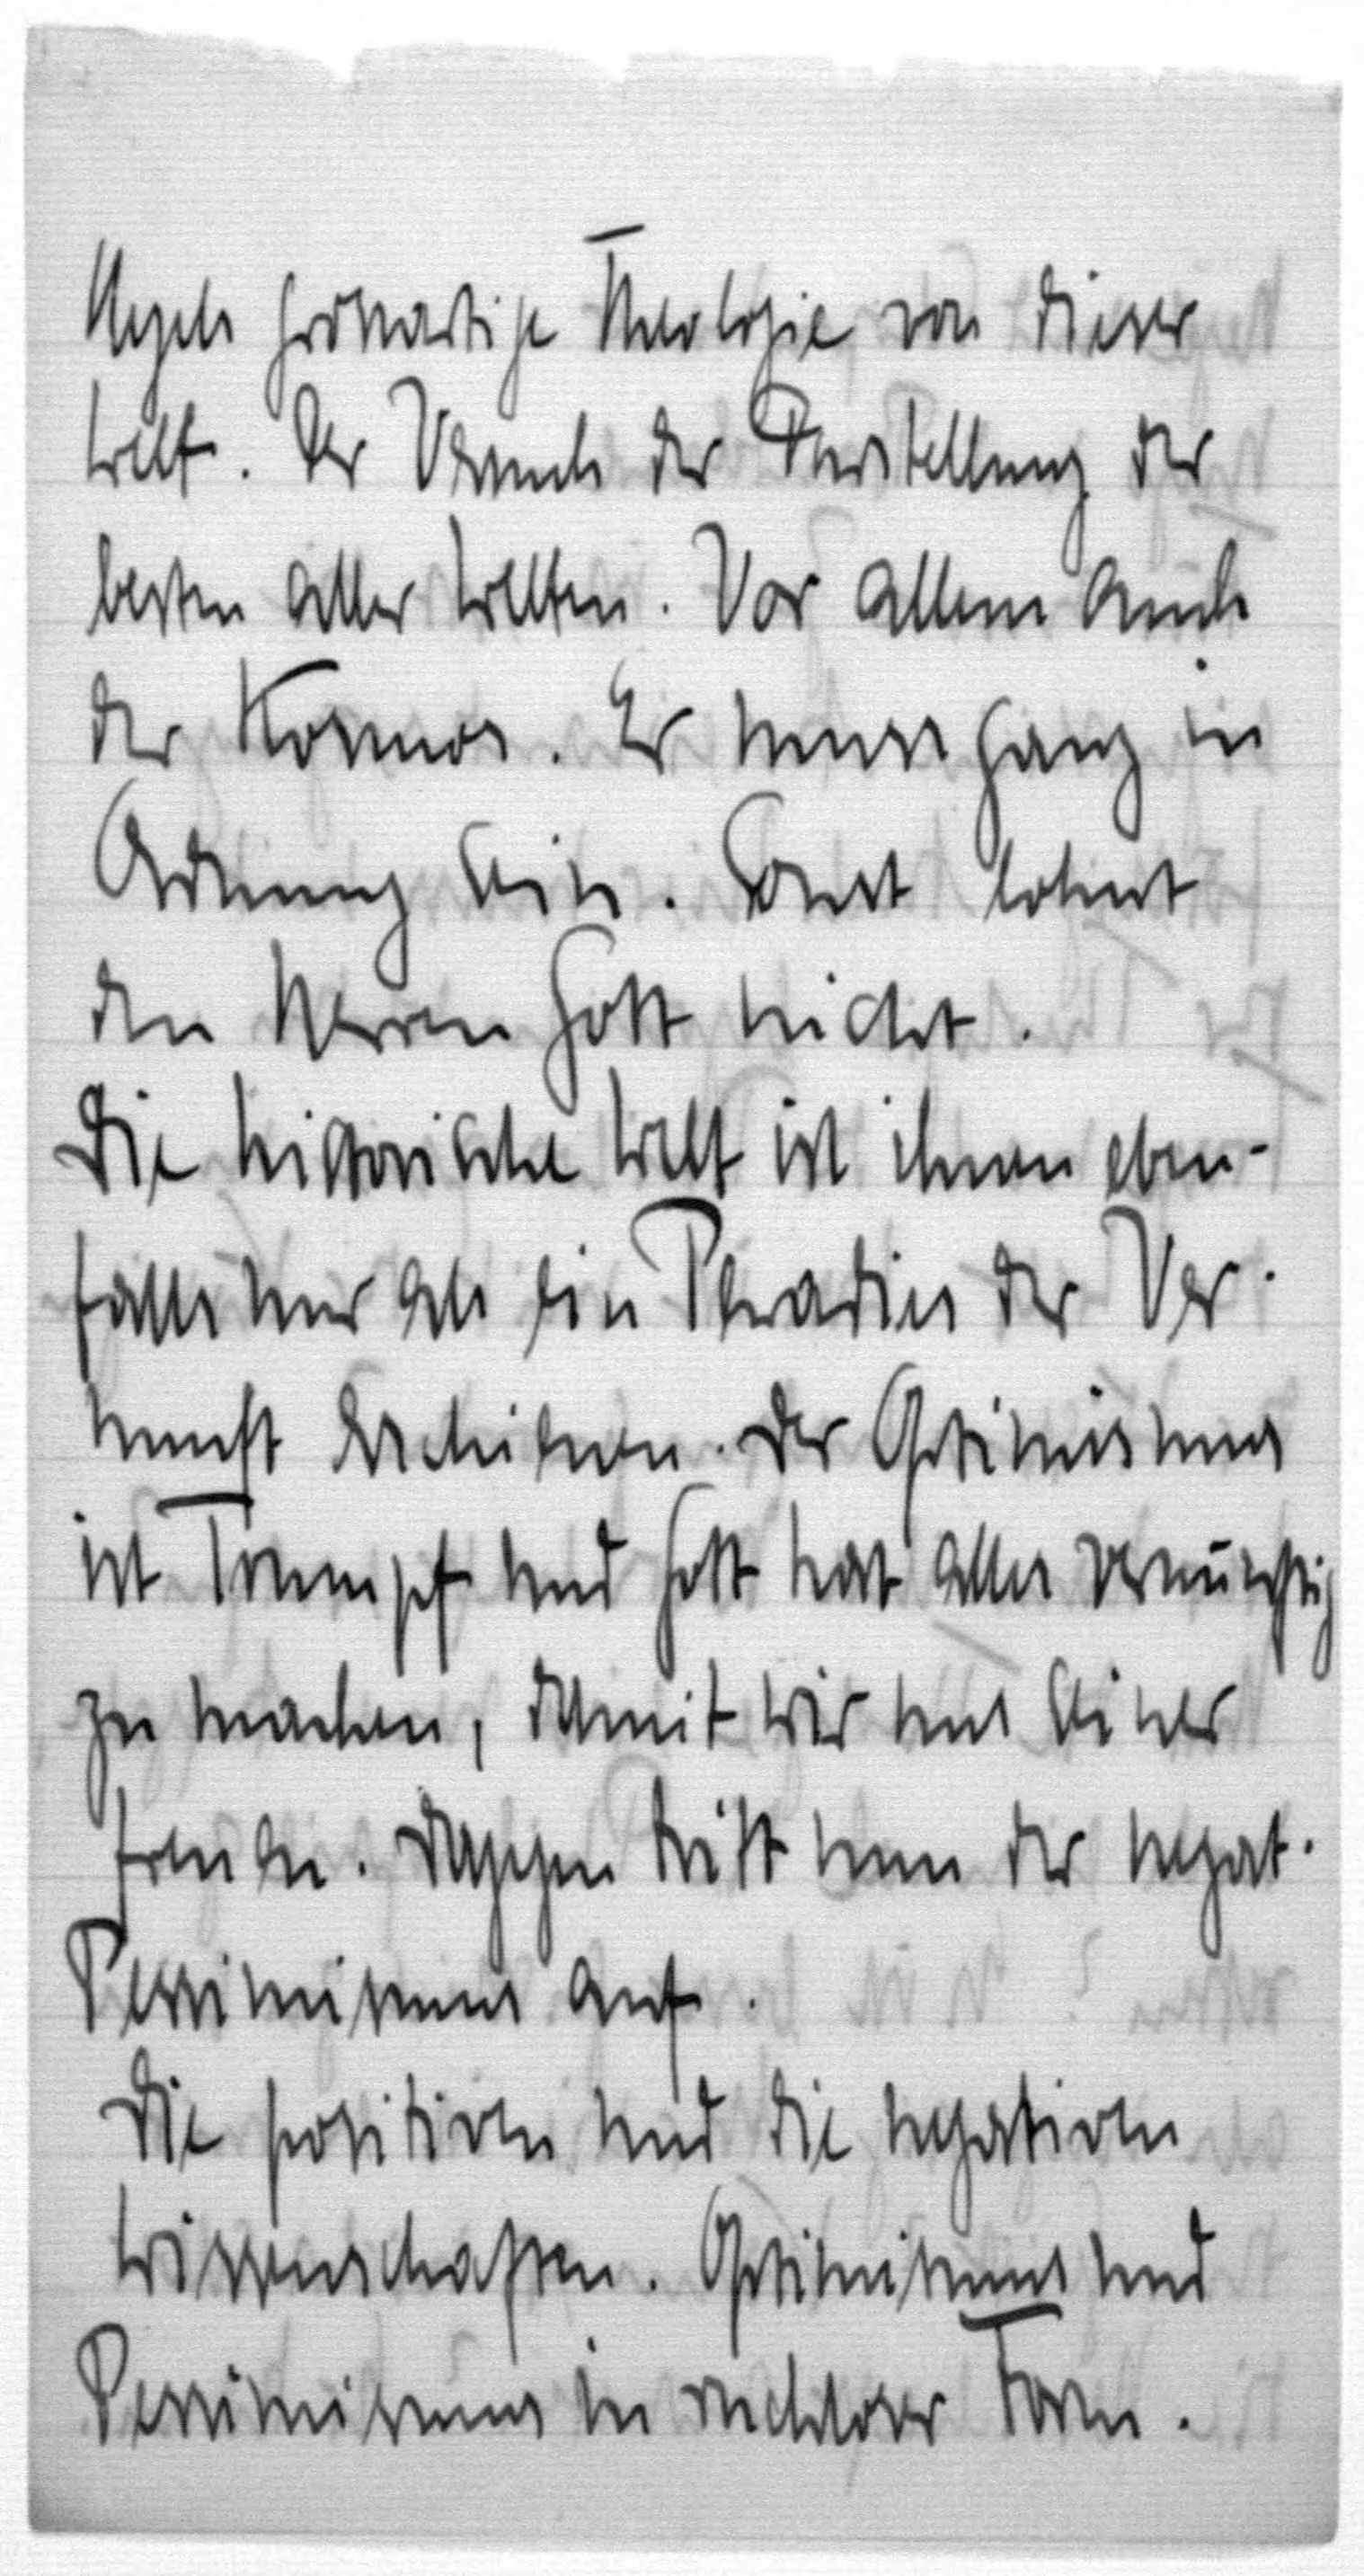 Hegels großartige Theologie von dieser
Welt. Der Versuch der Darstellung der
besten aller Welten. Vor allem auch
der Kosmos. Er muss ganz in
Ordnung sein. Sonst lohnt
den Herren Gott nicht.
Die historische Welt ist ihnen eben-
falls nur als ein Paradies der Ver-
nunft erschienen. Der Optimismus
ist Trumpf und Gott hat alles vernünftig
zu machen, damit wir uns seiner
freuen. Dagegen tritt nun der negat.
Pessimismus auf.
Die positiven und die negativen
Wissenschaften. Optimismus und
Pessimismus in Form.